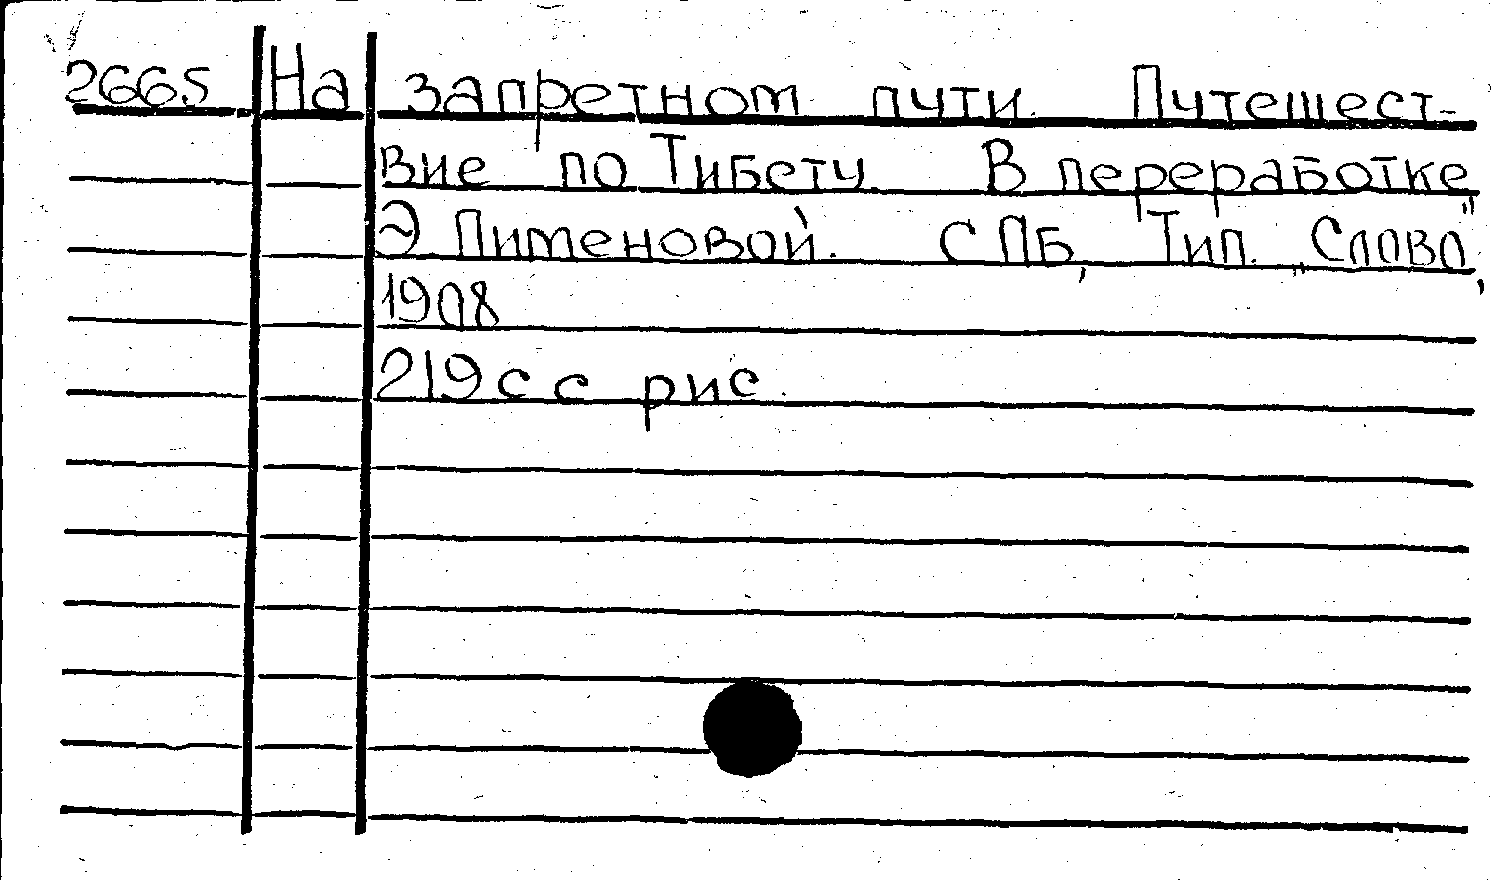 2665 На запретном пути. Путешест-
вие по Тибету. В переработке
Э Пименовой. СПБ, Тип. „Слово",
1908
219 с с рис.